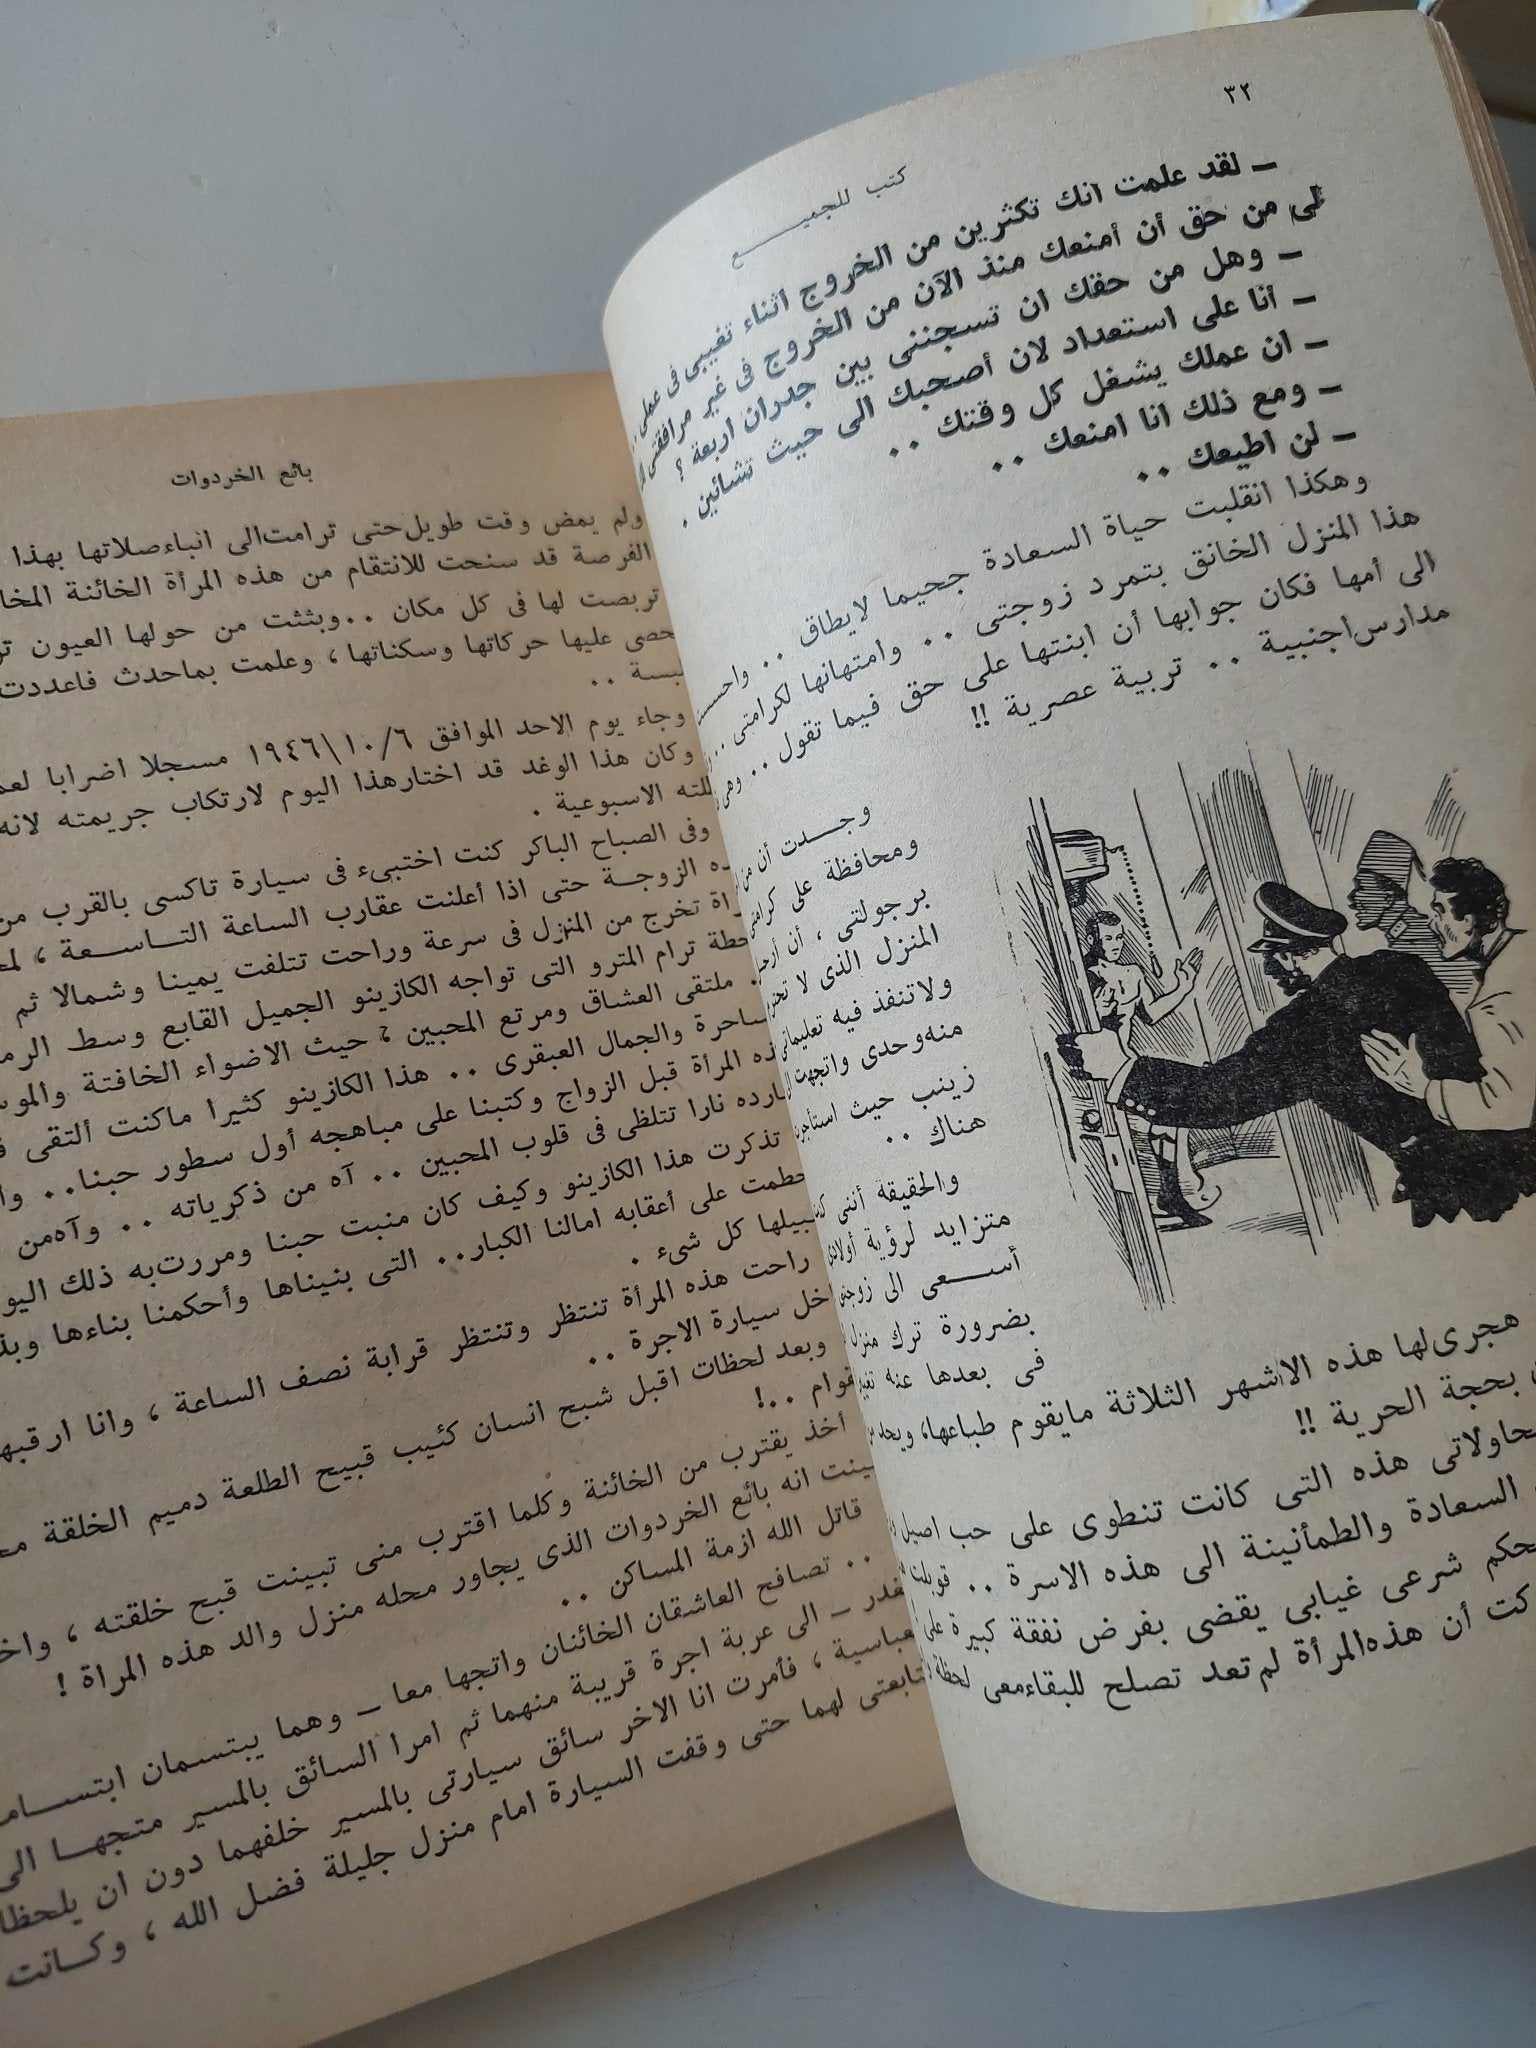 ٣٢
كتب للجميـــــع
– لقد علمت انك تكثرين من الخروج اثناء تغيبى فى عملى ..
لى من حق أن أمنعك منذ الآن من الخروج فى غير مرافقتى
– وهل من حقك ان تسجننى بين جدران اربعة ؟
– أنا على استعداد لان أصحبك الى حيث تشائين .
– ان عملك يشغل كل وقتك ..
– ومع ذلك انا امنعك ..
– لن اطيعك ..
وهكذا انقلبت حياة السعادة جحيما لايطاق .. واحسست
هذا المنزل الخانق بتمرد زوجتى .. وامتهانها لكرامتى ..
الى أمها فكان جوابها أن ابنتها على حق فيما تقول .. وهى
مدارس اجنبية .. تربية عصرية !!
وجـــدت أن من
ومحافظة على كرامتى
برجولتى ، أن أرحل
المنزل الذى لا تحترم
ولاتنفذ فيه تعليماتى
منه وحدى واتجهت
زينب حيث استأجرت
هناك ..
والحقيقة أننى
متزايد لرؤية أولادى
أســـعى الى زوجتى
بضرورة ترك منزل
فى بعدها عنه
هجرى لها هذه الاشهر الثلاثة مايقوم طباعها، ويحد من
بحجة الحرية !!
حاولاتى هذه التى كانت تنطوى على حب اصيل
السعادة والطمأنينة الى هذه الاسرة .. قوبلت
حكم شرعى غيابى يقضى بفرض نفقة كبيرة على
كت أن هذه المرأة لم تعد تصلح للبقاء معى لحظة
بائع الخردوات
ولم يمض وقت طويل حتى ترامت الى انباء صلاتها بهذا
الفرصة قد سنحت للانتقام من هذه المرأة الخائنة
تربصت لها فى كل مكان .. وبثثت من حولها العيون
حصى عليها حركاتها وسكناتها ، وعلمت بماحدث فاعددت
بسة ..
وجاء يوم الاحد الموافق ١٩٤٦/١٠/٦ مسجلا اضرابا
وكان هذا الوغد قد اختار هذا اليوم لارتكاب جريمته لانه
لته الاسبوعية .
وفى الصباح الباكر كنت اختبىء فى سيارة تاكسى بالقرب من
ه الزوجــة حتى اذا أعلنت عقارب الساعة التـــاســـعة ،
راة تخرج من المنزل فى سرعة وراحت تتلفت يمينا وشمالا ثم
حطة ترام المترو التى تواجه الكازينو الجميل القابع وسط
. ملتقى العشاق ومرتع المحبين ، حيث الاضواء الخافتة
ساحرة والجمال العبقرى .. هذا الكازينو كثيرا ماكنت ألتقى
ذه المرأة قبل الزواج وكتبنا على مباهجه أول سطور حبنا ..
ارده نارا تتلظى فى قلوب المحبين .. آه من ذكرياته .. وآه من
تذكرت هذا الكازينو وكيف كان منبت حبنا ومررت به ذلك
حطمت على أعقابه امالنا الكبار .. التى بنيناها وأحكمنا بناءها
بيلها كل شىء .
راحت هذه المرأة تنتظر وتنتظر قرابة نصف الساعة ، وانا ارقبها
اخل سيارة الاجرة ..
وبعد لحظات اقبل شبح انسان كئيب قبيح الطلعة دميم الخلقة
قوام ..!
أخذ يقترب من الخائنة وكلما اقترب منى تبينت قبح خلقته ،
ينت انه بائع الخردوات الذى يجاور محله منزل والد هذه المراة !
قاتل الله ازمة المساكن ..
.. تصافح العاشقان الخائنان واتجها معا – وهما يبتسمان
لغدر – الى عربة اجرة قريبة منهما ثم امرا السائق بالمسير متجهـا الى
عباسية ، فأمرت انا الاخر سائق سيارتى بالمسير خلفهما دون ان يلحظا
تابعتى لهما حتى وقفت السيارة امام منزل جليلة فضل الله ، وكـانت